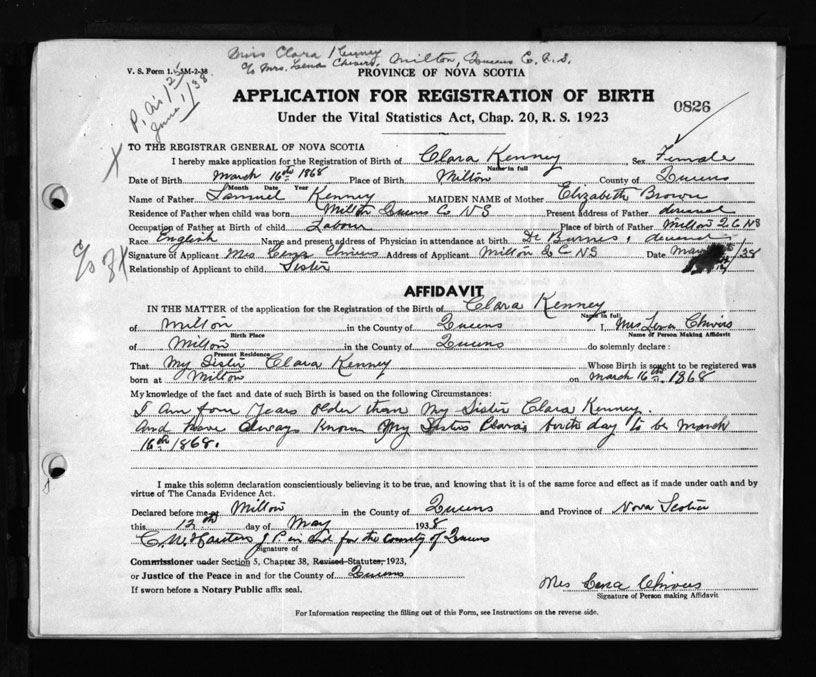 Miss Clara Kenney
c/o Mrs. Lena Chivers, Milton, Queens C. N.S.
V. S. Form 1.-5M-2-38
PROVINCE OF NOVA SCOTIA
P. av 12c
June 1/38
APPLICATION FOR REGISTRATION OF BIRTH
0826
Under the Vital Statistics Act, Chap. 20, R. S. 1923
TO THE REGISTRAR GENERAL OF NOVA SCOTIA
I hereby make application for the Registration of Birth of Clara Kenney, Sex Female
Name in full
Date of Birth March 16th 1868 Place of Birth Milton County of Queens
Month Date Year
Name of Father Samuel Kenney MAIDEN NAME of Mother Elizabeth Brown
Residence of Father when child was born Milton Queens Co NS Present address of Father deceased
Occupation of Father at Birth of child Labour Place of birth of Father Milton Q C NS
Race English Name and present address of Physician in attendance at birth Dr Burnes, deceased
Signature of Applicant Mrs Lena Chivers Address of Applicant Milton Q C NS Date May /38
Relationship of Applicant to child Sister
AFFIDAVIT
IN THE MATTER of the application for the Registration of the Birth of Clara Kenney
Name in full
of Milton in the County of Queens I, Mrs Lena Chivers
Birth Place Name of Person Making Affidavit
of Milton in the County of Queens do solemnly declare :
Present Residence
That My Sister Clara Kenney Whose Birth is sought to be registered was
born at Milton on March 16th. 1868
My knowledge of the fact and date of such Birth is based on the following Circumstances:
I am four years older than my Sister Clara Kenney.
And have always known my Sister Clara's birth day to be March
16th 1868.
I make this solemn declaration conscientiously believing it to be true, and knowing that it is of the same force and effect as if made under oath and by
virtue of The Canada Evidence Act.
Declared before me at Milton in the County of Queens and Province of Nova Scotia
this 12th day of May 1938
J P in and for the County of Queens
Signature of
Commissioner under Section 5, Chapter 38, Revised Statutes, 1923,
or Justice of the Peace in and for the County of Queens
If sworn before a Notary Public affix seal.
Mrs Lena Chivers
Signature of Person making Affidavit
For Information respecting the filling out of this Form, see Instructions on the reverse side.